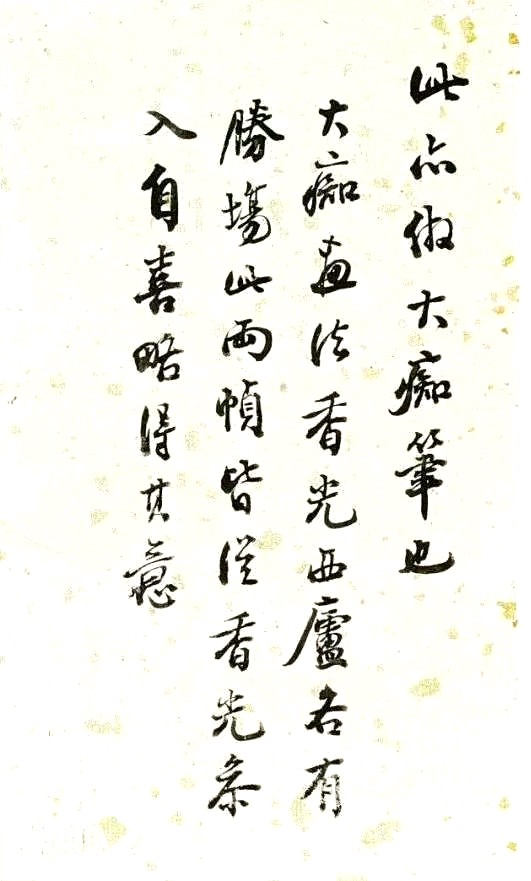 此亦仿大痴筆也
大痴畫法香光西廬各有
勝場此兩幀皆從香光參
入自喜略得其意